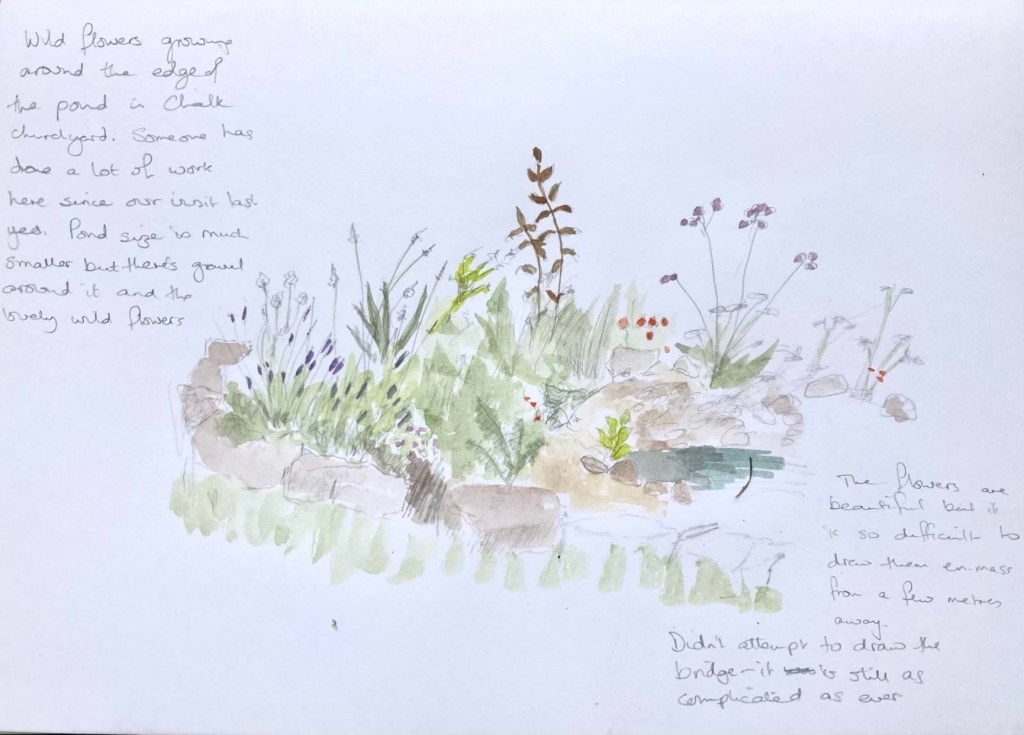 Wild flowers growing
around the edge of
the pond in Chalk
churchyard. Someone has
done a lot of work
here since our visit last
year. Pond size is much
smaller but there's gravel
around it and the
lovely wild flowers
The flowers are
beautiful but it
is so difficult to
draw them en-mass
from a few metres
away.
Didn't attempt to draw the
bridge - it is still as
complicated as ever